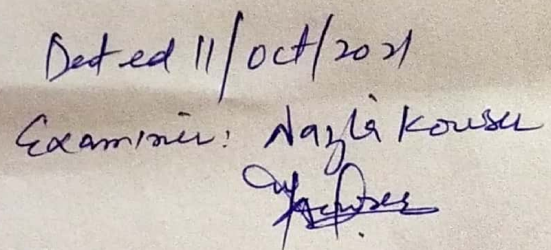 Dated 11/Oct/2021
Examiner: Nazla Kouser